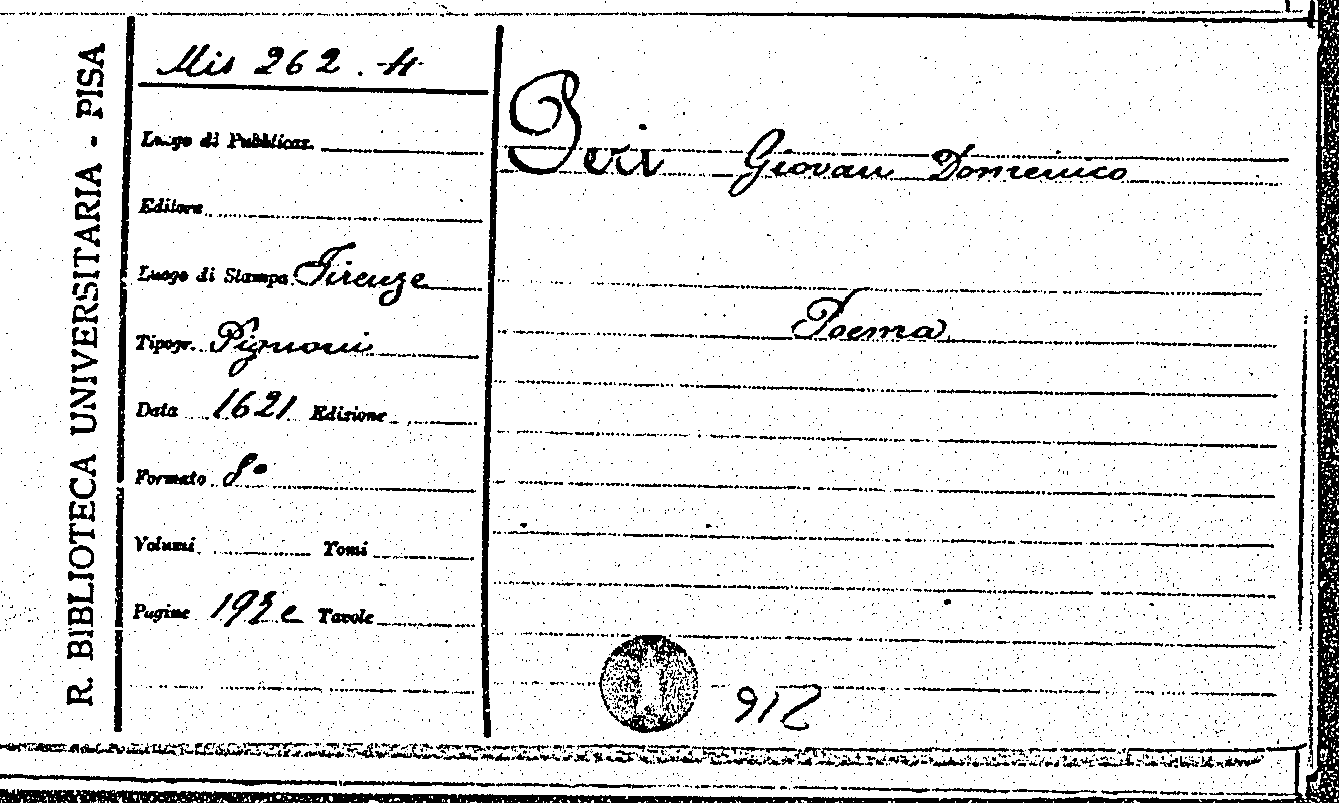 R. BIBLIOTECA UNIVERSITARIA - PISA
Mis 262. 4
Luogo di Pubblicaz.
Editore
Luogo di Stampa Firenze
Tipogr. Pignoni
Data 1621 Edizione
Formato 8°
Volumi Tomi
Pagine Tavole
Peri Giovan Domenico
Poema